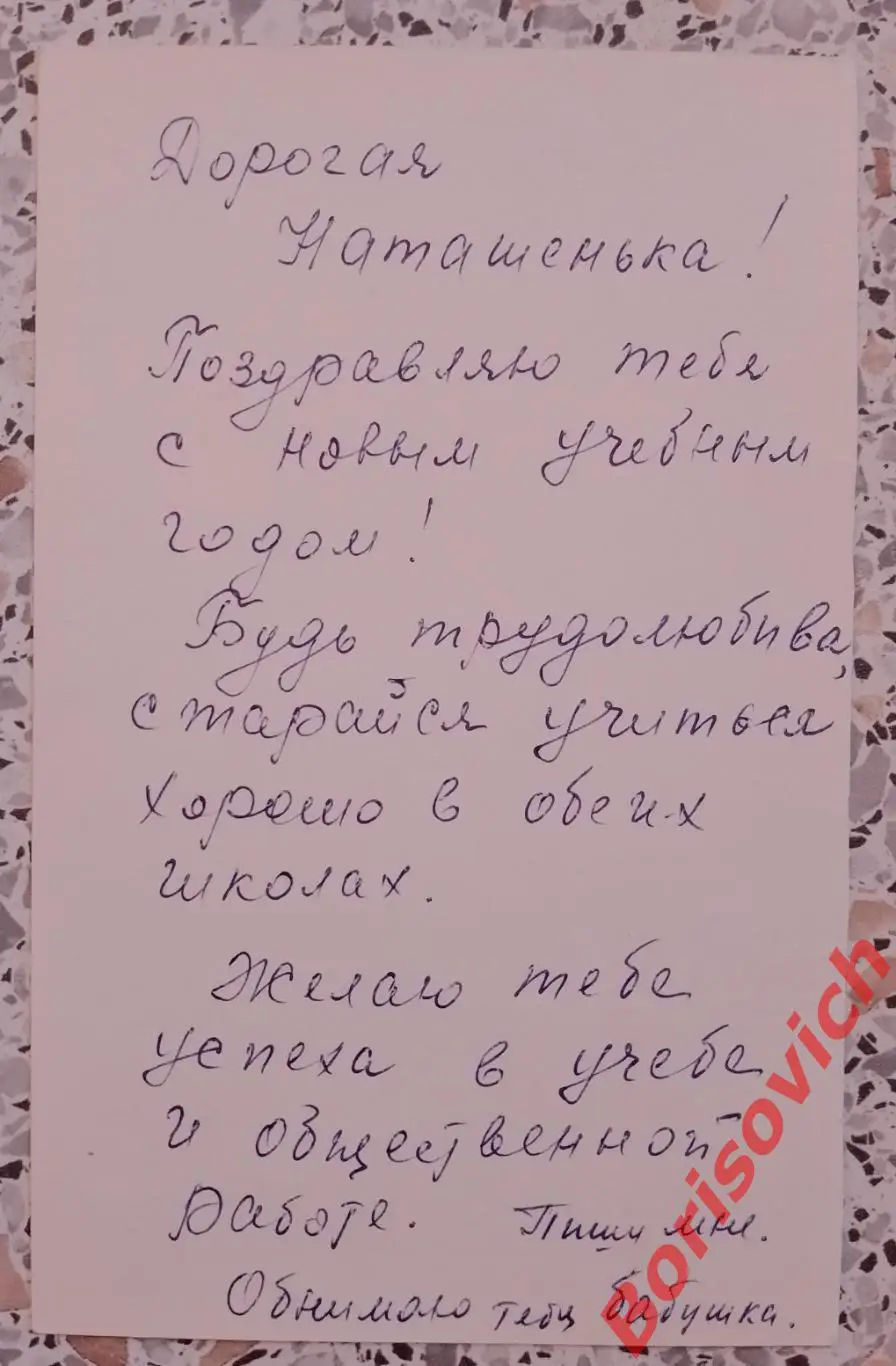 Дорогая
Наташенька!
Поздравляю тебя
с новым учебным
годом!
Будь трудолюбива,
старайся учиться
хорошо в обеих
школах.
Желаю тебе
успеха в учебе
и общественной
работе. Пиши мне.
Обнимаю тебя бабушка.
Borisovich